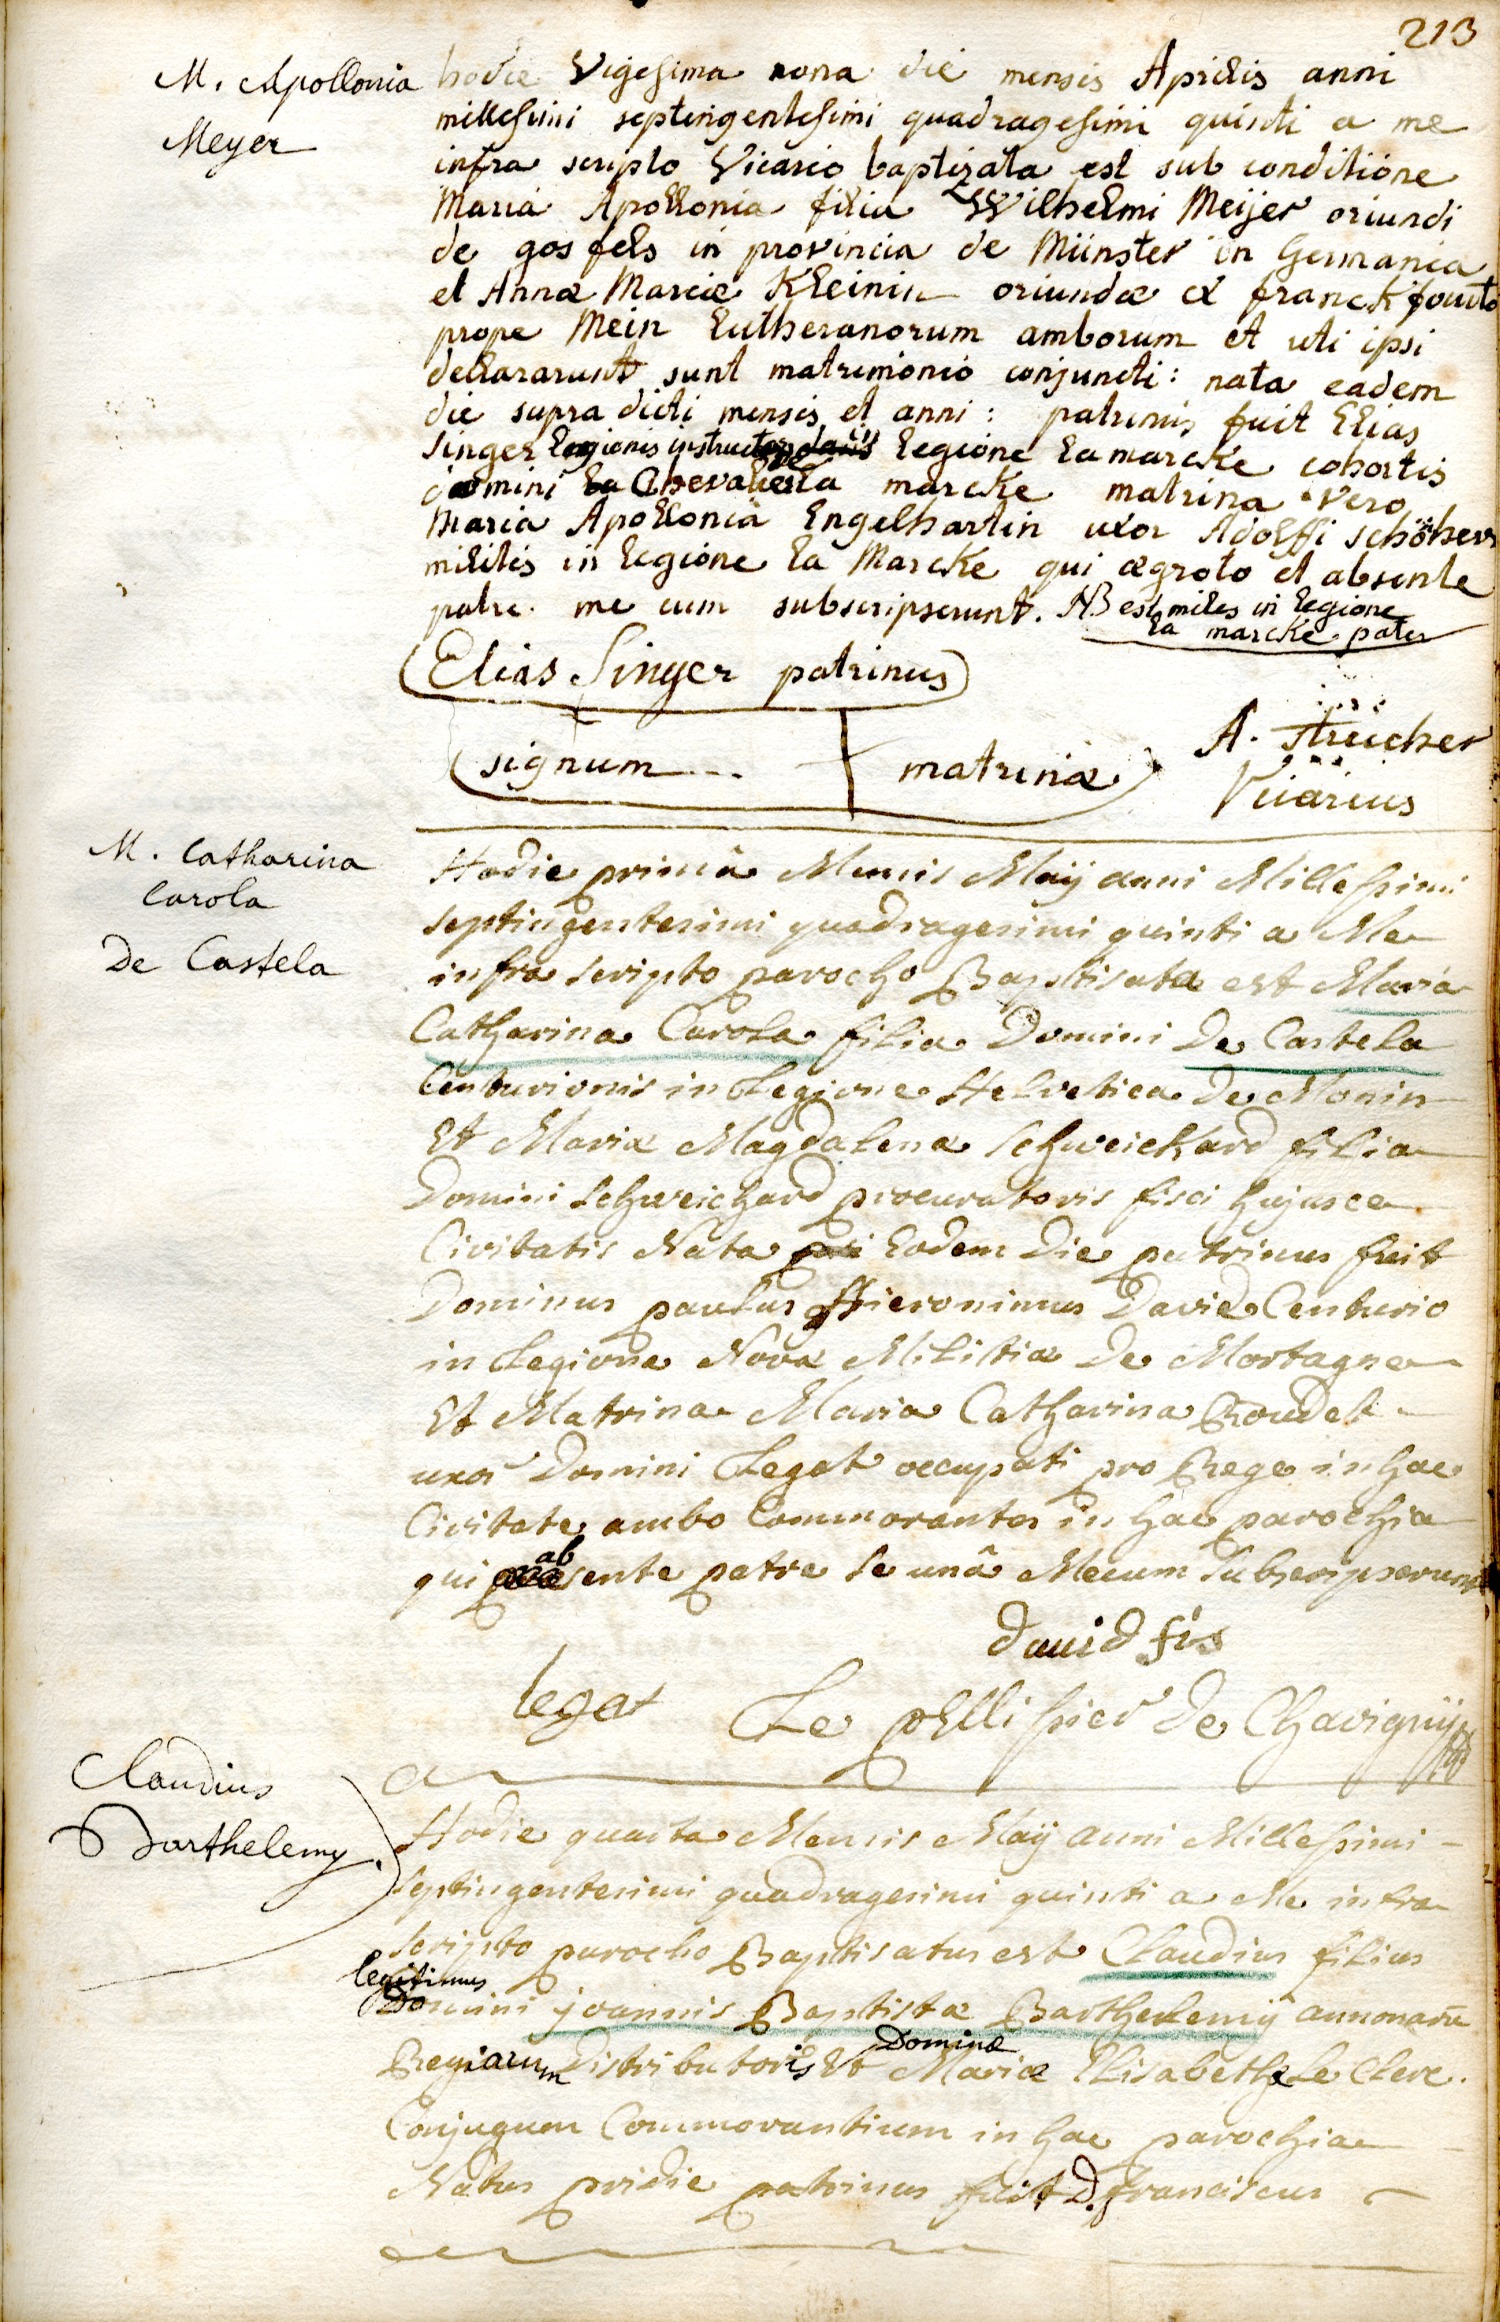 213
M. Apollonia
Meyer
hodie Vigesima nona die mensis Aprilis anni
millesimi septingentesimi quadragesimi quinti a me
infra scripto Vicario baptizata est sub conditione
Maria Apollonia filia Wilhelmi Meijer oriundi
de gosfels in provincia de Münster in Germania
et Annæ Mariæ Kleinin oriundæ ex franckfourto
prope Mein Lutheranorum amborum et uti ipsi
declararunt sunt matrimonio conjuncti: nata eadem
die supra dicti mensis et anni: patrinus fuit Elias
Singer legionis instructor legione Lamarcke cohortis
domini Chevalier La marcke matrina vero
Maria Apollonia Engelhartin uxor Adolffi schöherr
militis in legione La Marcke qui ægroto et absente
patre me cum subscripserunt. NB est miles in legione
La marcke pater
Elias Singer patrinus
signum matrinæ
A. Streicher
Vicarius
M. Catharina
Carola
De Castela
Hodie primâ Mensis Maÿ anni Millessimi
septingentesimi quadragesimi quinti a Me
infra scripto parocho Baptisata est Maria
Catharina Carola filia Domini De Castela
Centurionis in Legione Helvetica De Monin
Et Mariæ Magdalenæ Schweichard filia
Domini Schweichard procuratoris fisci hujusce
Civitatis Nata Eodem Die patrinus fuit
Dominus paulus Hieronimus David Centurio
in Legione Novæ Militiæ De Mortagne
Et Matrina Maria Catharina Roudet
uxor Domini Legat occupati pro Rege in hac
Civitate ambo Commorantes in hac parochia
qui absente patre se unâ Mecum Subscripserunt
david fis
legat Le pellissier De Chavignÿ
Claudius
Barthelemy
Hodie quarta Mensis Maÿ anni Millessimi
septingentesimi quadragesimi quinti a Me infra
scripto parocho Baptisatus est Claudius filius
legitimus
Domini joannis Baptistæ Barthelemÿ annonarũ
Regiarum Distributoris Et Dominæ Mariæ Elisabethæ Le Clerc.
Conjugum Commorantium in hac parochia
Natus pridie patrinus fuit D. franciscus